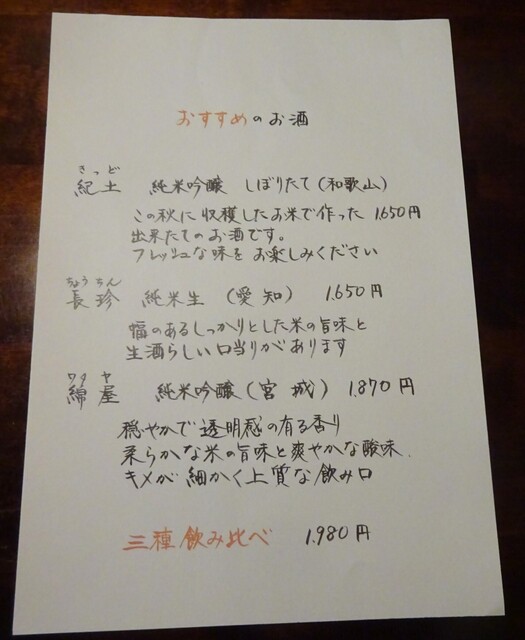 おすすめのお酒
きっど
紀土 純米吟醸 しぼりたて(和歌山)
この秋に収穫したお米で作った 1.650円
出来たてのお酒です。
フレッシュな味をお楽しみください
ちょうちん
長珍 純米生 (愛知) 1.650円
幅のあるしっかりとした米の旨味と
生酒らしい口当りがあります
ワタヤ
綿屋 純米吟醸(宮城) 1.870円
穏やかで透明感の有る香り
柔らかな米の旨味と爽やかな酸味、
キメが細かく上質な飲み口
三種飲み比べ 1.980円